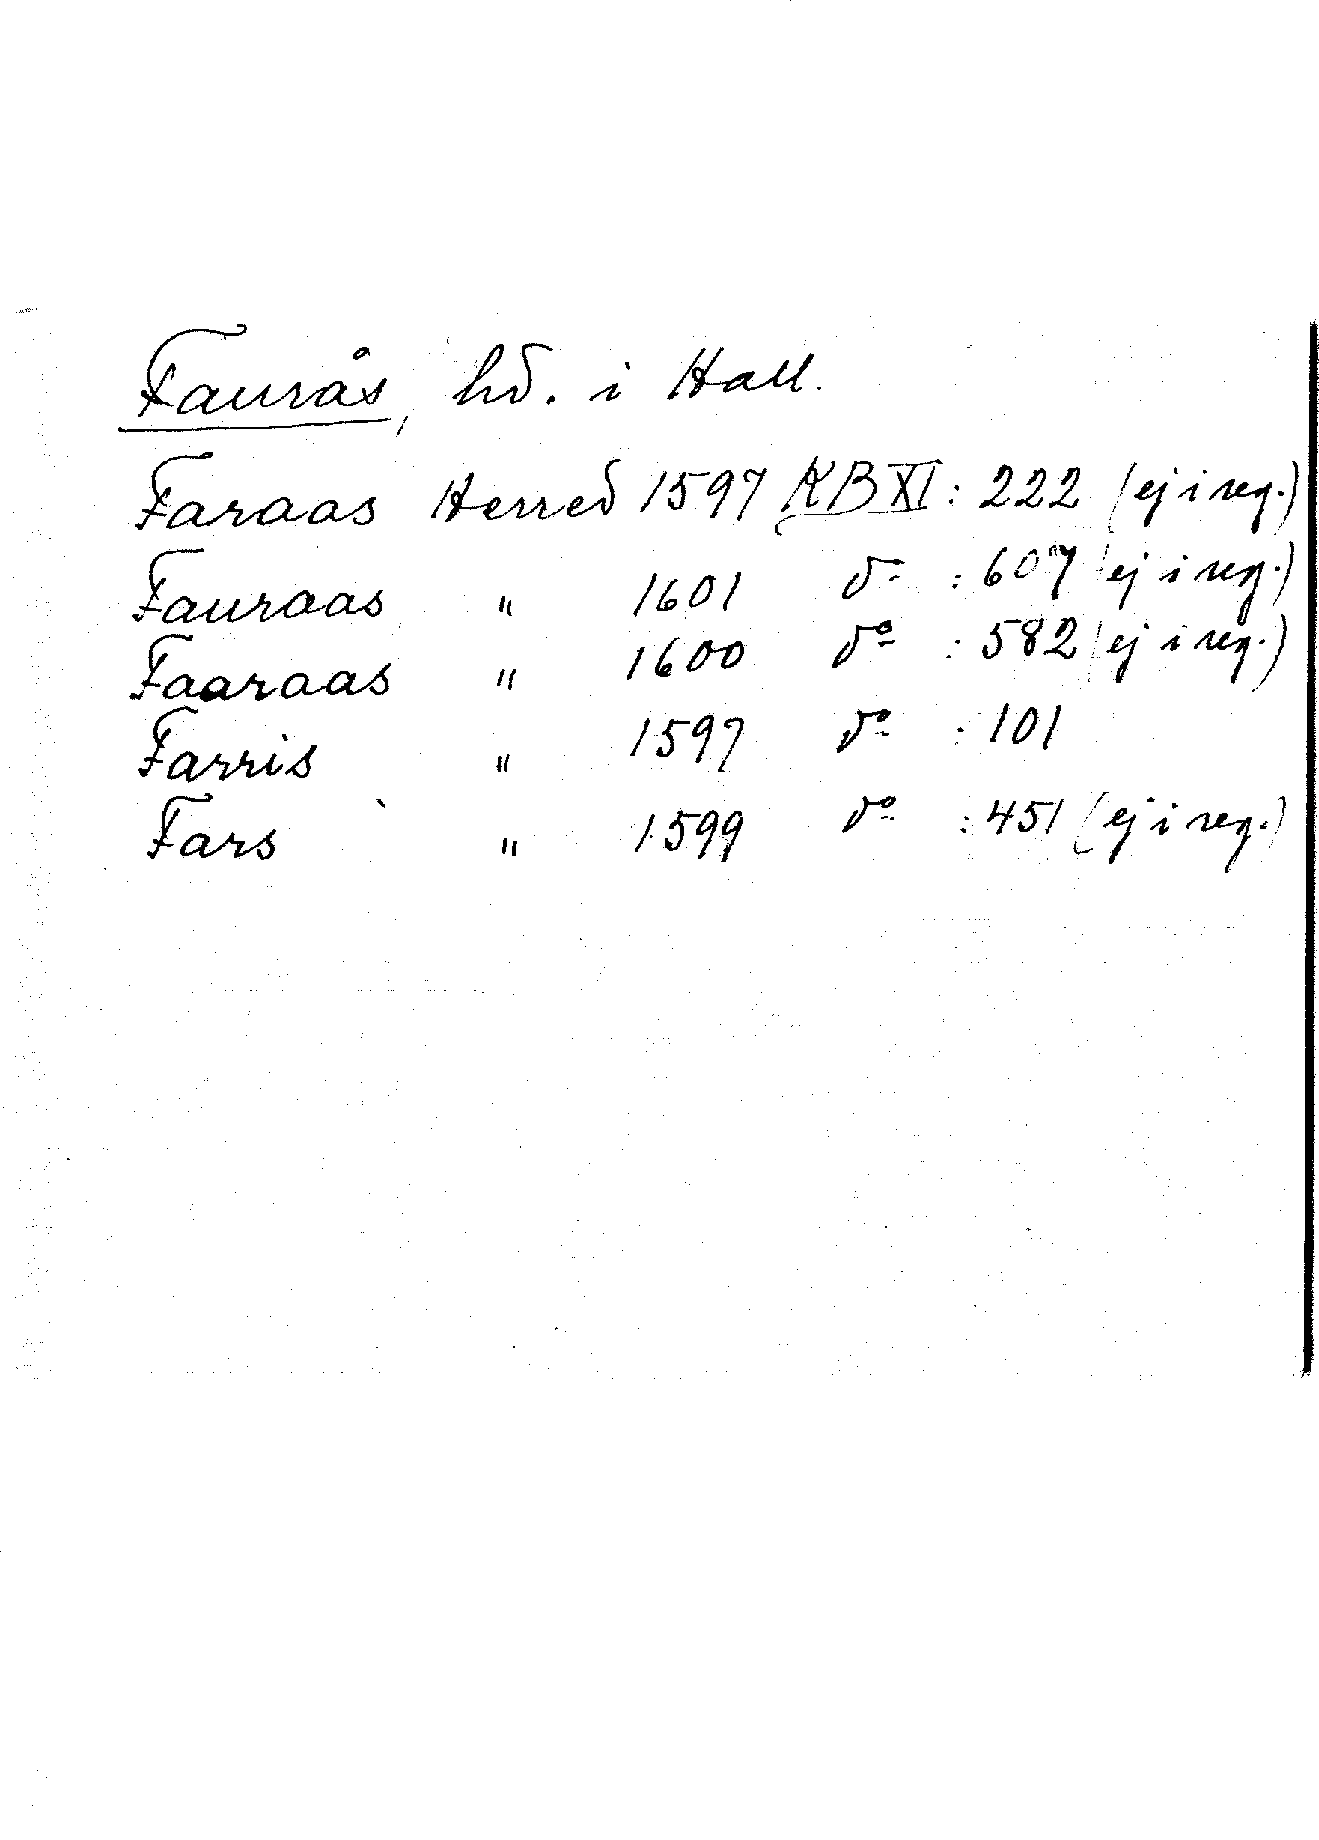 Faurås, hd. i Hall.
Faraas Herred 1597 KB XI: 222 (ej i reg.)
Fauraas " 1601 do : 607 (ej i reg.)
Faaraas " 1600 do : 582 (ej i reg.)
Farris " 1597 do : 101
Fars " 1599 do : 451 (ej i reg.)